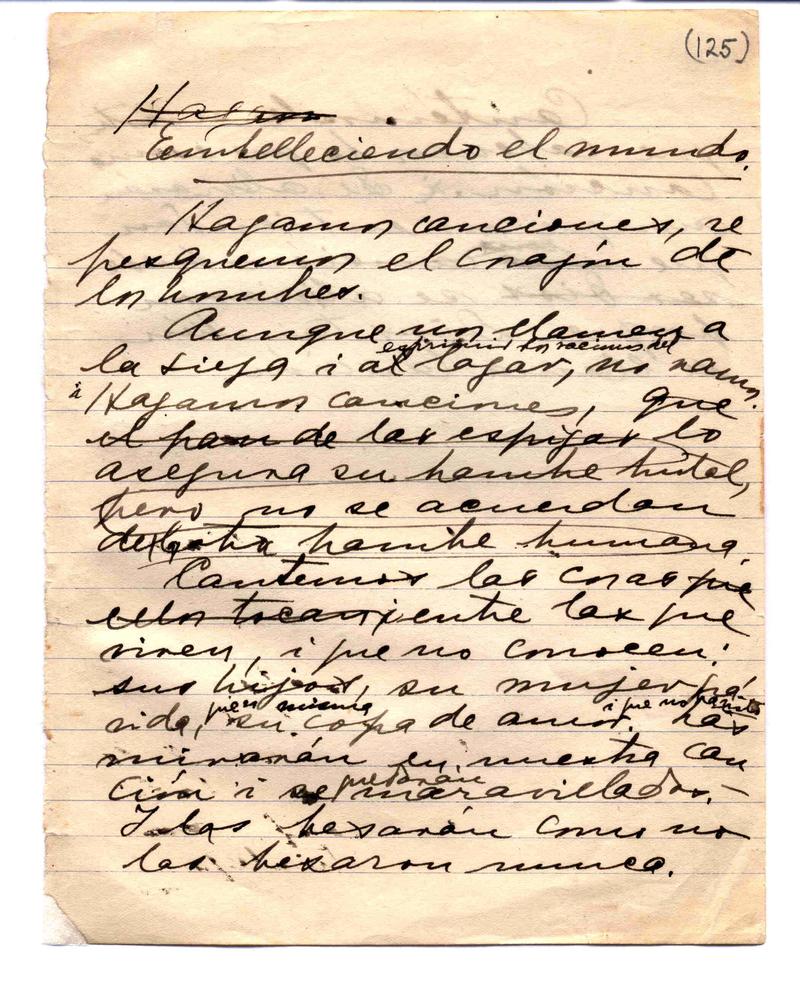 (125)
Hagam
Embelleciendo el mundo.
Hagamos canciones, re
fresquemos el corazón de
los hombres.
Aunque nos llamen a
exprimir los racimos del
la siega i al lagar, no vamos.
Hagamos canciones, que
el pan de las espigas lo
asegura su hambre brutal,
pero no se acuerdan
de la otra hambre humana.
Cantemos las cosas que
ellos tocan, entre las que
viven, i que no conocen:
sus hijos, su mujer
vida, su copa de amor. Las
i que no
mirarán en nuestra can
ción i se quedarán maravillados.-
I las besarán como no
las besaron nunca.